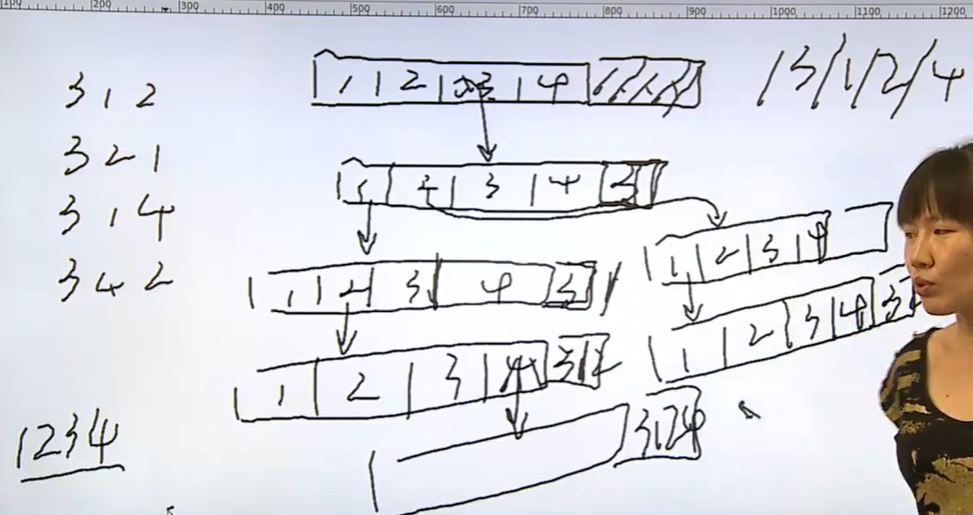 100 200 300 400 500 600 700 800 900 1000 1100 1200
3 1 2
3 2 1
3 1 4
3 4 2
1 2 3 4
1 2 3 4
/3/1/2/4
1 2 3 4 3
1 2 3 4 3
1 2 3 4
1 2 3 4 312
1 2 3 4 3
3124